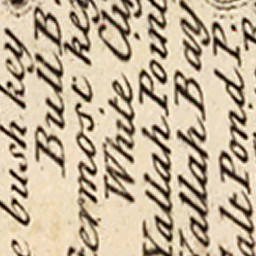 bush key
Bull B.
termost key
White Cli
Yallah Point
Yallah Bay
alt Pond P.